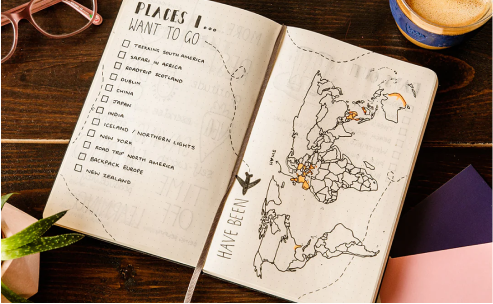 PLACES I...
WANT TO GO
TREKKING SOUTH AMERICA
SAFARI IN AFRICA
ROADTRIP SCOTLAND
DUBLIN
CHINA
JAPAN
INDIA
ICELAND / NORTHERN LIGHTS
NEW YORK
ROAD TRIP NORTH AMERICA
BACKPACK EUROPE
NEW ZEALAND
HAVE BEEN